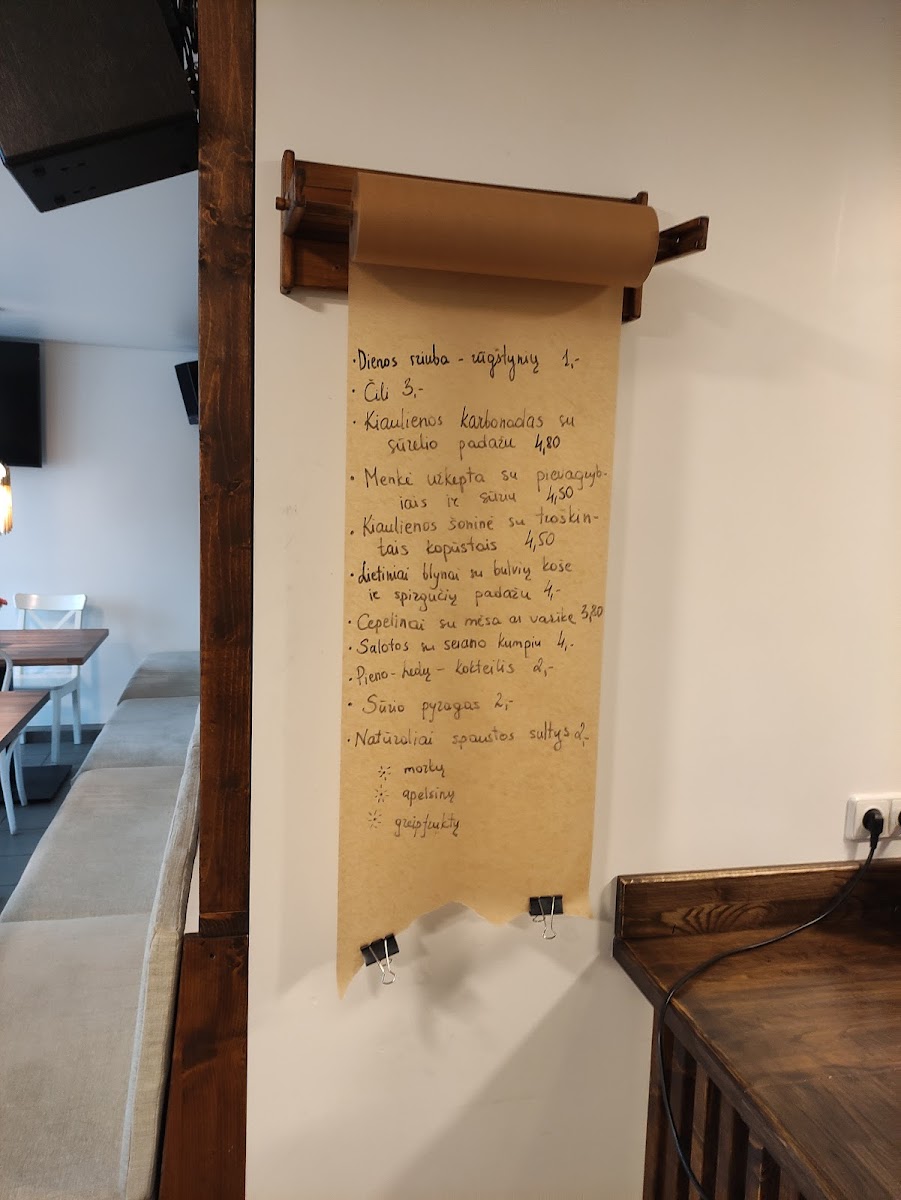 · Dienos sriuba - rūgštynių 1,-
· Čili 3,-
· Kiaulienos karbonadas su
sūrelio padažu 4,80
· Menkė užkepta su pievagryb-
iais ir sūriu 4,50
· Kiaulienos šoninė su troškin-
tais kopūstais 4,50
· Lietiniai blynai su bulvių koše
ir spirgučių padažu 4,-
· Cepelinai su mėsa ar varške 3,80
· Salotos su serano kumpiu 4,-
· Pieno-ledų-kokteilis 2,-
· Sūrio pyragas 2,-
· Natūraliai spaustos sultys 2,-
morkų
apelsinų
greipfruktų